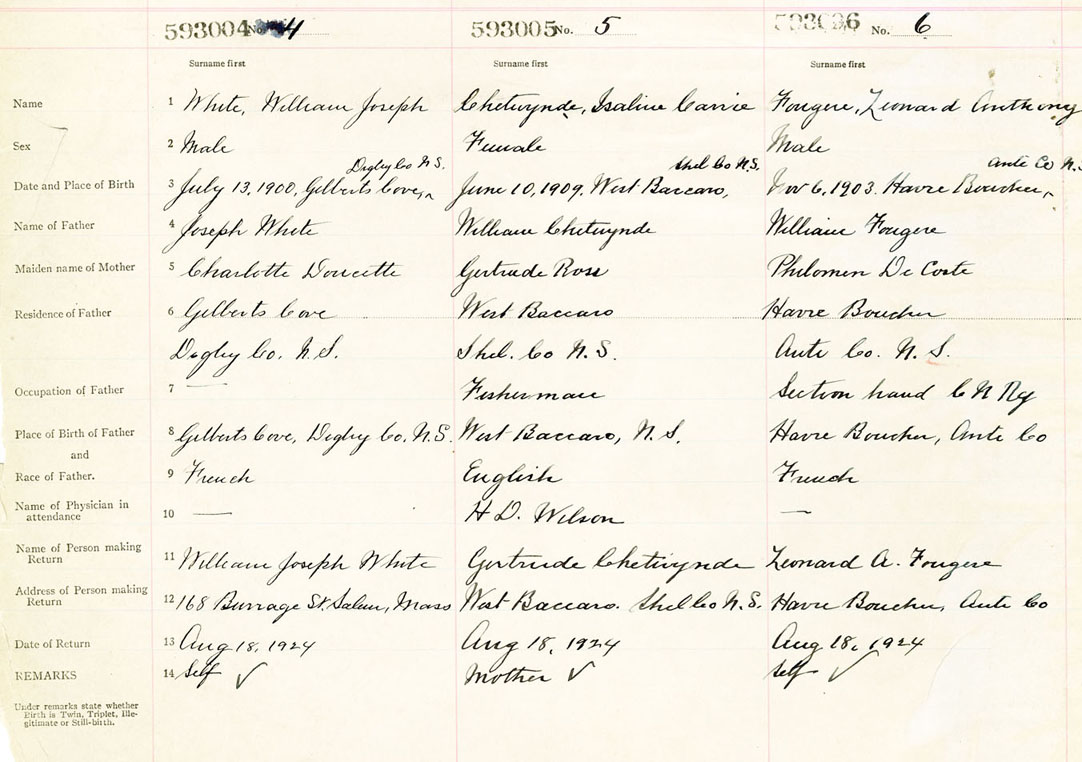 593004 No. 4 593005 No. 5 No. 6
Surname first Surname first Surname first
Name 1 White, William Joseph Chetwynde, Isaline Carrie Fougere, Leonard Anthony
Sex 2 Male Female Male
Digby Co N.S. Shel Co N.S. Ante Co N.S.
Date and Place of Birth 3 July 13, 1900, Gilberts Cove, June 10, 1909, West Baccaro, Nov 6, 1903. Havre Boucher,
Name of Father 4 Joseph White William Chetwynde William Fougere
Maiden name of Mother 5 Charlotte Doucette Gertrude Ross Philomen De Coste
Residence of Father 6 Gilberts Cove West Baccaro Havre Boucher
Digby Co. N.S. Shel. Co N.S. Ante Co. N.S.
Occupation of Father 7 — Fisherman Section hand C N Ry
Place of Birth of Father 8 Gilberts Cove, Digby Co. N.S. West Baccaro, N.S. Havre Boucher, Ante Co
and
Race of Father. 9 French English French
Name of Physician in
attendance 10 — H D. Wilson —
Name of Person making
Return 11 William Joseph White Gertrude Chetwynde Leonard A. Fougere
Address of Person making
Return 12 168 Burrage St. Salem, Mass West Baccaro. Shel Co N.S. Havre Boucher, Ante Co
Date of Return 13 Aug 18, 1924 Aug 18, 1924 Aug 18, 1924
REMARKS 14 Self ✓ Mother ✓ Self ✓
Under remarks state whether
Birth is Twin, Triplet, Ille-
gitimate or Still-birth.